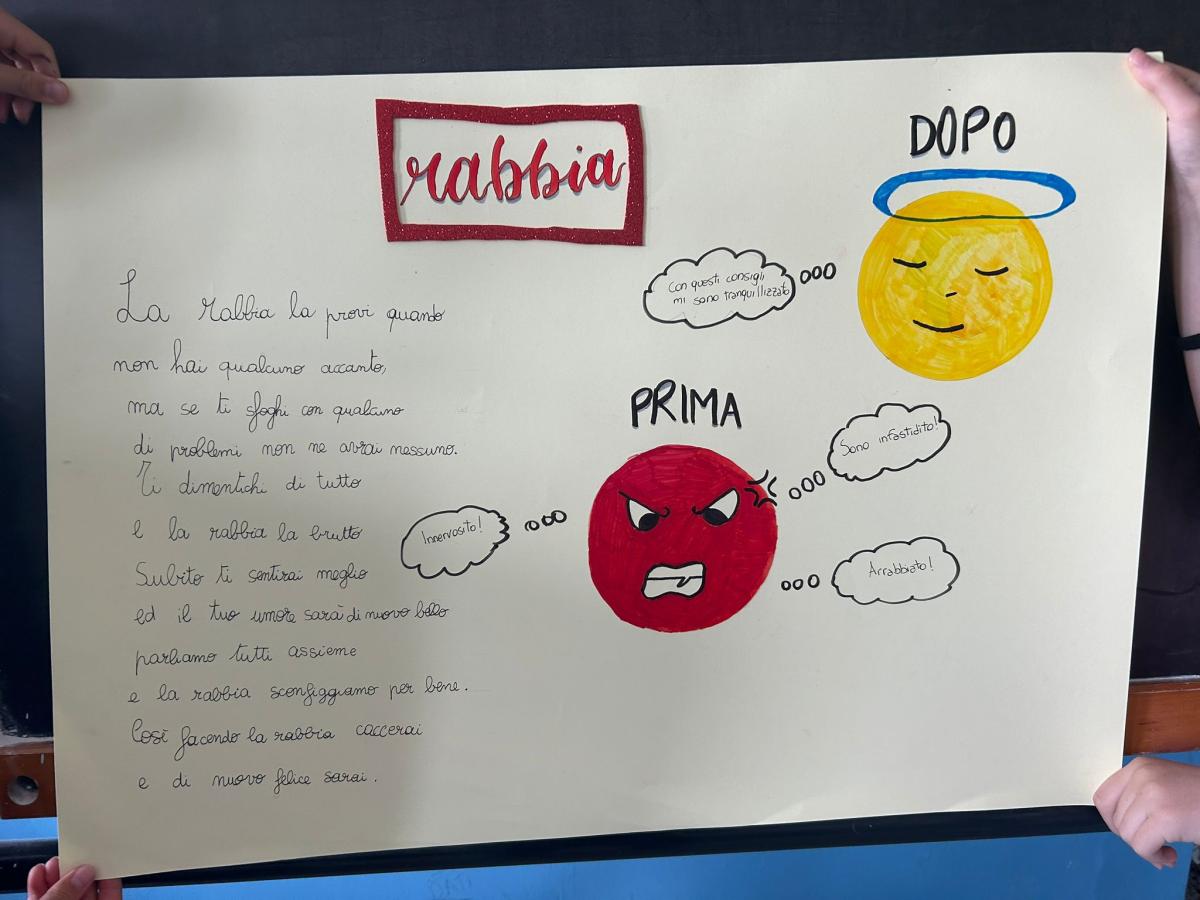 rabbia
DOPO
Con questi consigli
mi sono tranquillizzato
La rabbia la provi quando
non hai qualcuno accanto,
ma se ti sfoghi con qualcuno
di problemi non ne avrai nessuno.
Ti dimentichi di tutto
e la rabbia la brutto
Subito ti sentirai meglio
ed il tuo umore sarà di nuovo bello
parliamo tutti assieme
e la rabbia sconfiggiamo per bene.
Così facendo la rabbia caccerai
e di nuovo felice sarai.
PRIMA
Sono infastidito!
Innervosito!
Arrabbiato!